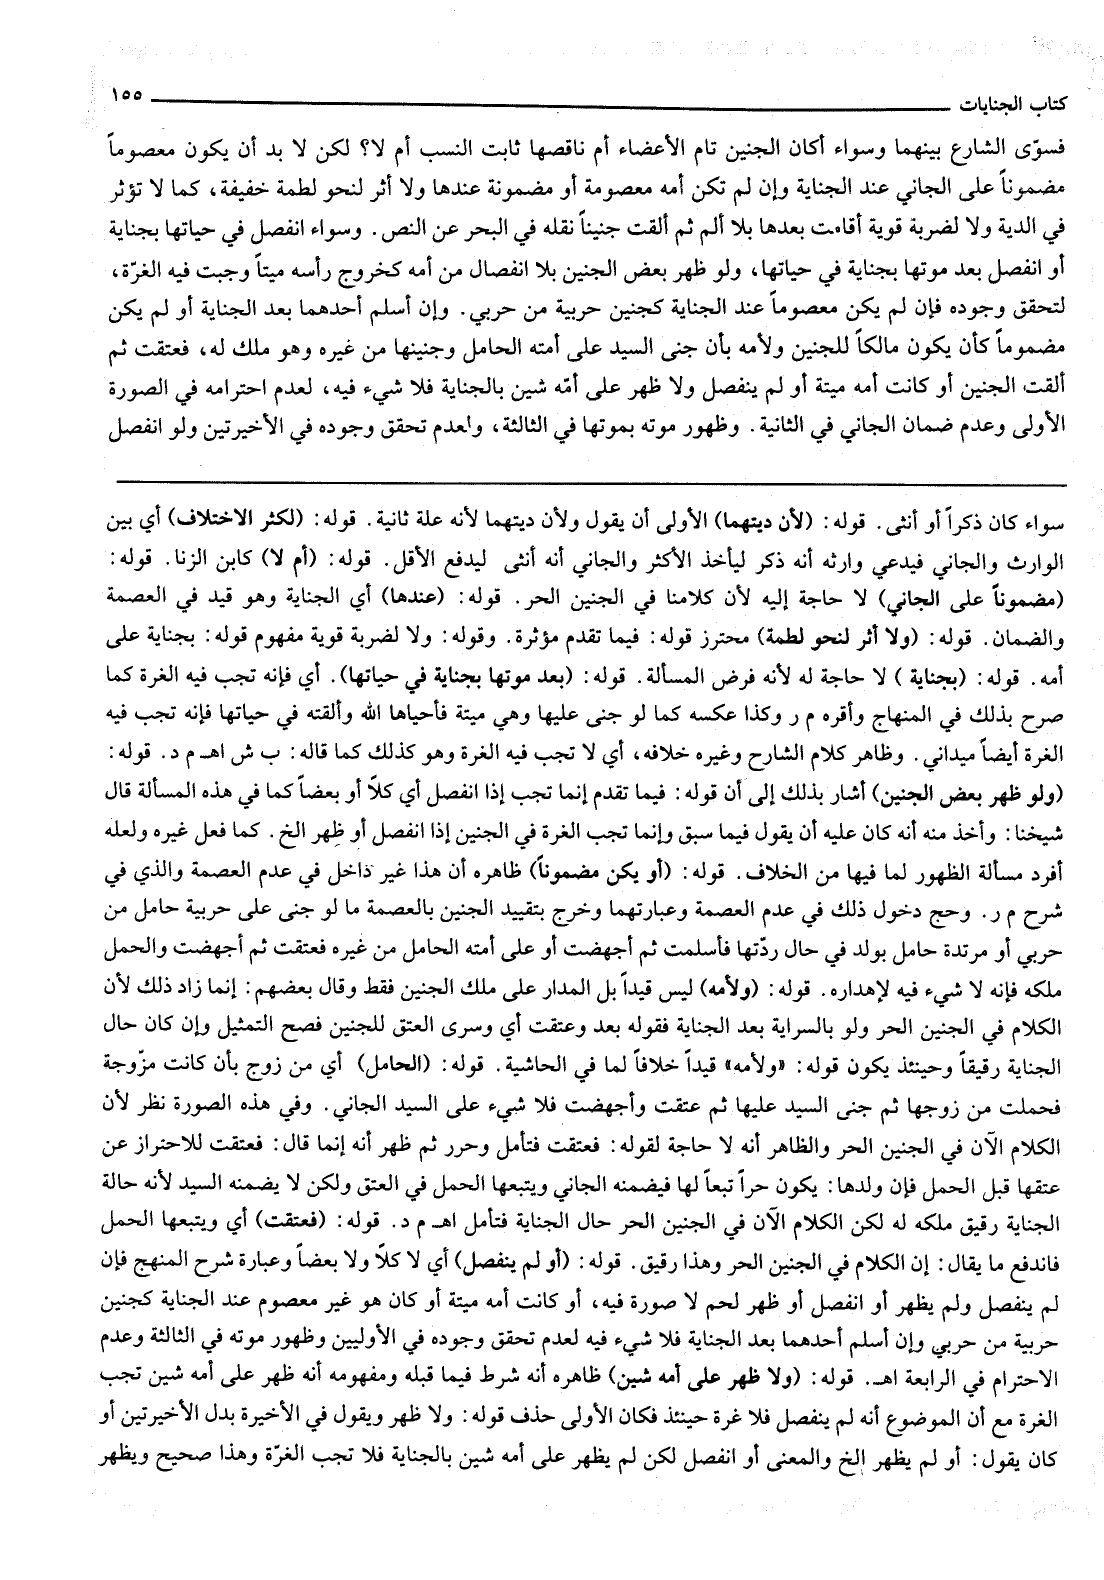 كتاب الجنايات ١٥٥
فسوّى الشارع بينهما وسواء أكان الجنين تام الأعضاء أم ناقصها ثابت النسب أم لا؟ لكن لا بد أن يكون معصوماً
مضموناً على الجاني عند الجناية وإن لم تكن أمه معصومة أو مضمونة عندها ولا أثر لنحو لطمة خفيفة، كما لا تؤثر
في الدية ولا لضربة قوية أقامت بعدها بلا ألم ثم ألقت جنيناً نقله في البحر عن النص. وسواء انفصل في حياتها بجناية
أو انفصل بعد موتها بجناية في حياتها، ولو ظهر بعض الجنين بلا انفصال من أمه كخروج رأسه ميتاً وجبت فيه الغرّة،
لتحقق وجوده فإن لم يكن معصوماً عند الجناية كجنين حربية من حربي. وإن أسلم أحدهما بعد الجناية أو لم يكن
مضموماً كأن يكون مالكاً للجنين ولأمه بأن جنى السيد على أمته الحامل وجنينها من غيره وهو ملك له، فعتقت ثم
ألقت الجنين أو كانت أمه ميتة أو لم ينفصل ولا ظهر على أمّه شين بالجناية فلا شيء فيه، لعدم احترامه في الصورة
الأولى وعدم ضمان الجاني في الثانية. وظهور موته بموتها في الثالثة، ولعدم تحقق وجوده في الأخيرتين ولو انفصل
سواء كان ذكراً أو أنثى. قوله: (لأن ديتهما) الأولى أن يقول ولأن ديتهما لأنه علة ثانية. قوله: (لكثر الاختلاف) أي بين
الوارث والجاني فيدعي وارثه أنه ذكر ليأخذ الأكثر والجاني أنه أنثى ليدفع الأقل. قوله: (أم لا) كابن الزنا. قوله:
(مضموناً على الجاني) لا حاجة إليه لأن كلامنا في الجنين الحر. قوله: (عندها) أي الجناية وهو قيد في العصمة
والضمان. قوله: (ولا أثر لنحو لطمة) محترز قوله: فيما تقدم مؤثرة. وقوله: ولا لضربة قوية مفهوم قوله: بجناية على
أمه. قوله: (بجناية ) لا حاجة له لأنه فرض المسألة. قوله: (بعد موتها بجناية في حياتها). أي فإنه تجب فيه الغرة كما
صرح بذلك في المنهاج وأقره م ر وكذا عكسه كما لو جنى عليها وهي ميتة فأحياها الله وألقته في حياتها فإنه تجب فيه
الغرة أيضاً ميداني. وظاهر كلام الشارح وغيره خلافه، أي لا تجب فيه الغرة وهو كذلك كما قاله: ب ش اهـ م د. قوله:
(ولو ظهر بعض الجنين) أشار بذلك إلى أن قوله: فيما تقدم إنما تجب إذا انفصل أي كلاً أو بعضاً كما في هذه المسألة قال
شيخنا: وأخذ منه أنه كان عليه أن يقول فيما سبق وإنما تجب الغرة في الجنين إذا انفصل أو ظهر الخ. كما فعل غيره ولعله
أفرد مسألة الظهور لما فيها من الخلاف. قوله: (أو يكن مضموناً) ظاهره أن هذا غير داخل في عدم العصمة والذي في
شرح م ر. وحج دخول ذلك في عدم العصمة وعبارتهما وخرج بتقييد الجنين بالعصمة ما لو جنى على حربية حامل من
حربي أو مرتدة حامل بولد في حال ردّتها فأسلمت ثم أجهضت أو على أمته الحامل من غيره فعتقت ثم أجهضت والحمل
ملكه فإنه لا شيء فيه لإهداره. قوله: (ولأمه) ليس قيداً بل المدار على ملك الجنين فقط وقال بعضهم: إنما زاد ذلك لأن
الكلام في الجنين الحر ولو بالسراية بعد الجناية فقوله بعد وعتقت أي وسرى العتق للجنين فصح التمثيل وإن كان حال
الجناية رقيقاً وحينئذ يكون قوله: «ولأمه» قيداً خلافاً لما في الحاشية. قوله: (الحامل) أي من زوج بأن كانت مزّوجة
فحملت من زوجها ثم جنى السيد عليها ثم عتقت وأجهضت فلا شيء على السيد الجاني. وفي هذه الصورة نظر لأن
الكلام الآن في الجنين الحر والظاهر أنه لا حاجة لقوله: فعتقت فتأمل وحرر ثم ظهر أنه إنما قال: فعتقت للاحتراز عن
عتقها قبل الحمل فإن ولدها: يكون حراً تبعاً لها فيضمنه الجاني ويتبعها الحمل في العتق ولكن لا يضمنه السيد لأنه حالة
الجناية رقيق ملكه له لكن الكلام الآن في الجنين الحر حال الجناية فتأمل اهـ م د. قوله: (فعتقت) أي ويتبعها الحمل
فاندفع ما يقال: إن الكلام في الجنين الحر وهذا رقيق. قوله: (أو لم ينفصل) أي لا كلاً ولا بعضاً وعبارة شرح المنهج فإن
لم ينفصل ولم يظهر أو انفصل أو ظهر لحم لا صورة فيه، أو كانت أمه ميتة أو كان هو غير معصوم عند الجناية كجنين
حربية من حربي وإن أسلم أحدهما بعد الجناية فلا شيء فيه لعدم تحقق وجوده في الأوليين وظهور موته في الثالثة وعدم
الاحترام في الرابعة اهـ. قوله: (ولا ظهر على أمه شين) ظاهره أنه شرط فيما قبله ومفهومه أنه ظهر على أمه شين تجب
الغرة مع أن الموضوع أنه لم ينفصل فلا غرة حينئذ فكان الأولى حذف قوله: ولا ظهر ويقول في الأخيرة بدل الأخيرتين أو
كان يقول: أو لم يظهر الخ والمعنى أو انفصل لكن لم يظهر على أمه شين بالجناية فلا تجب الغرّة وهذا صحيح ويظهر